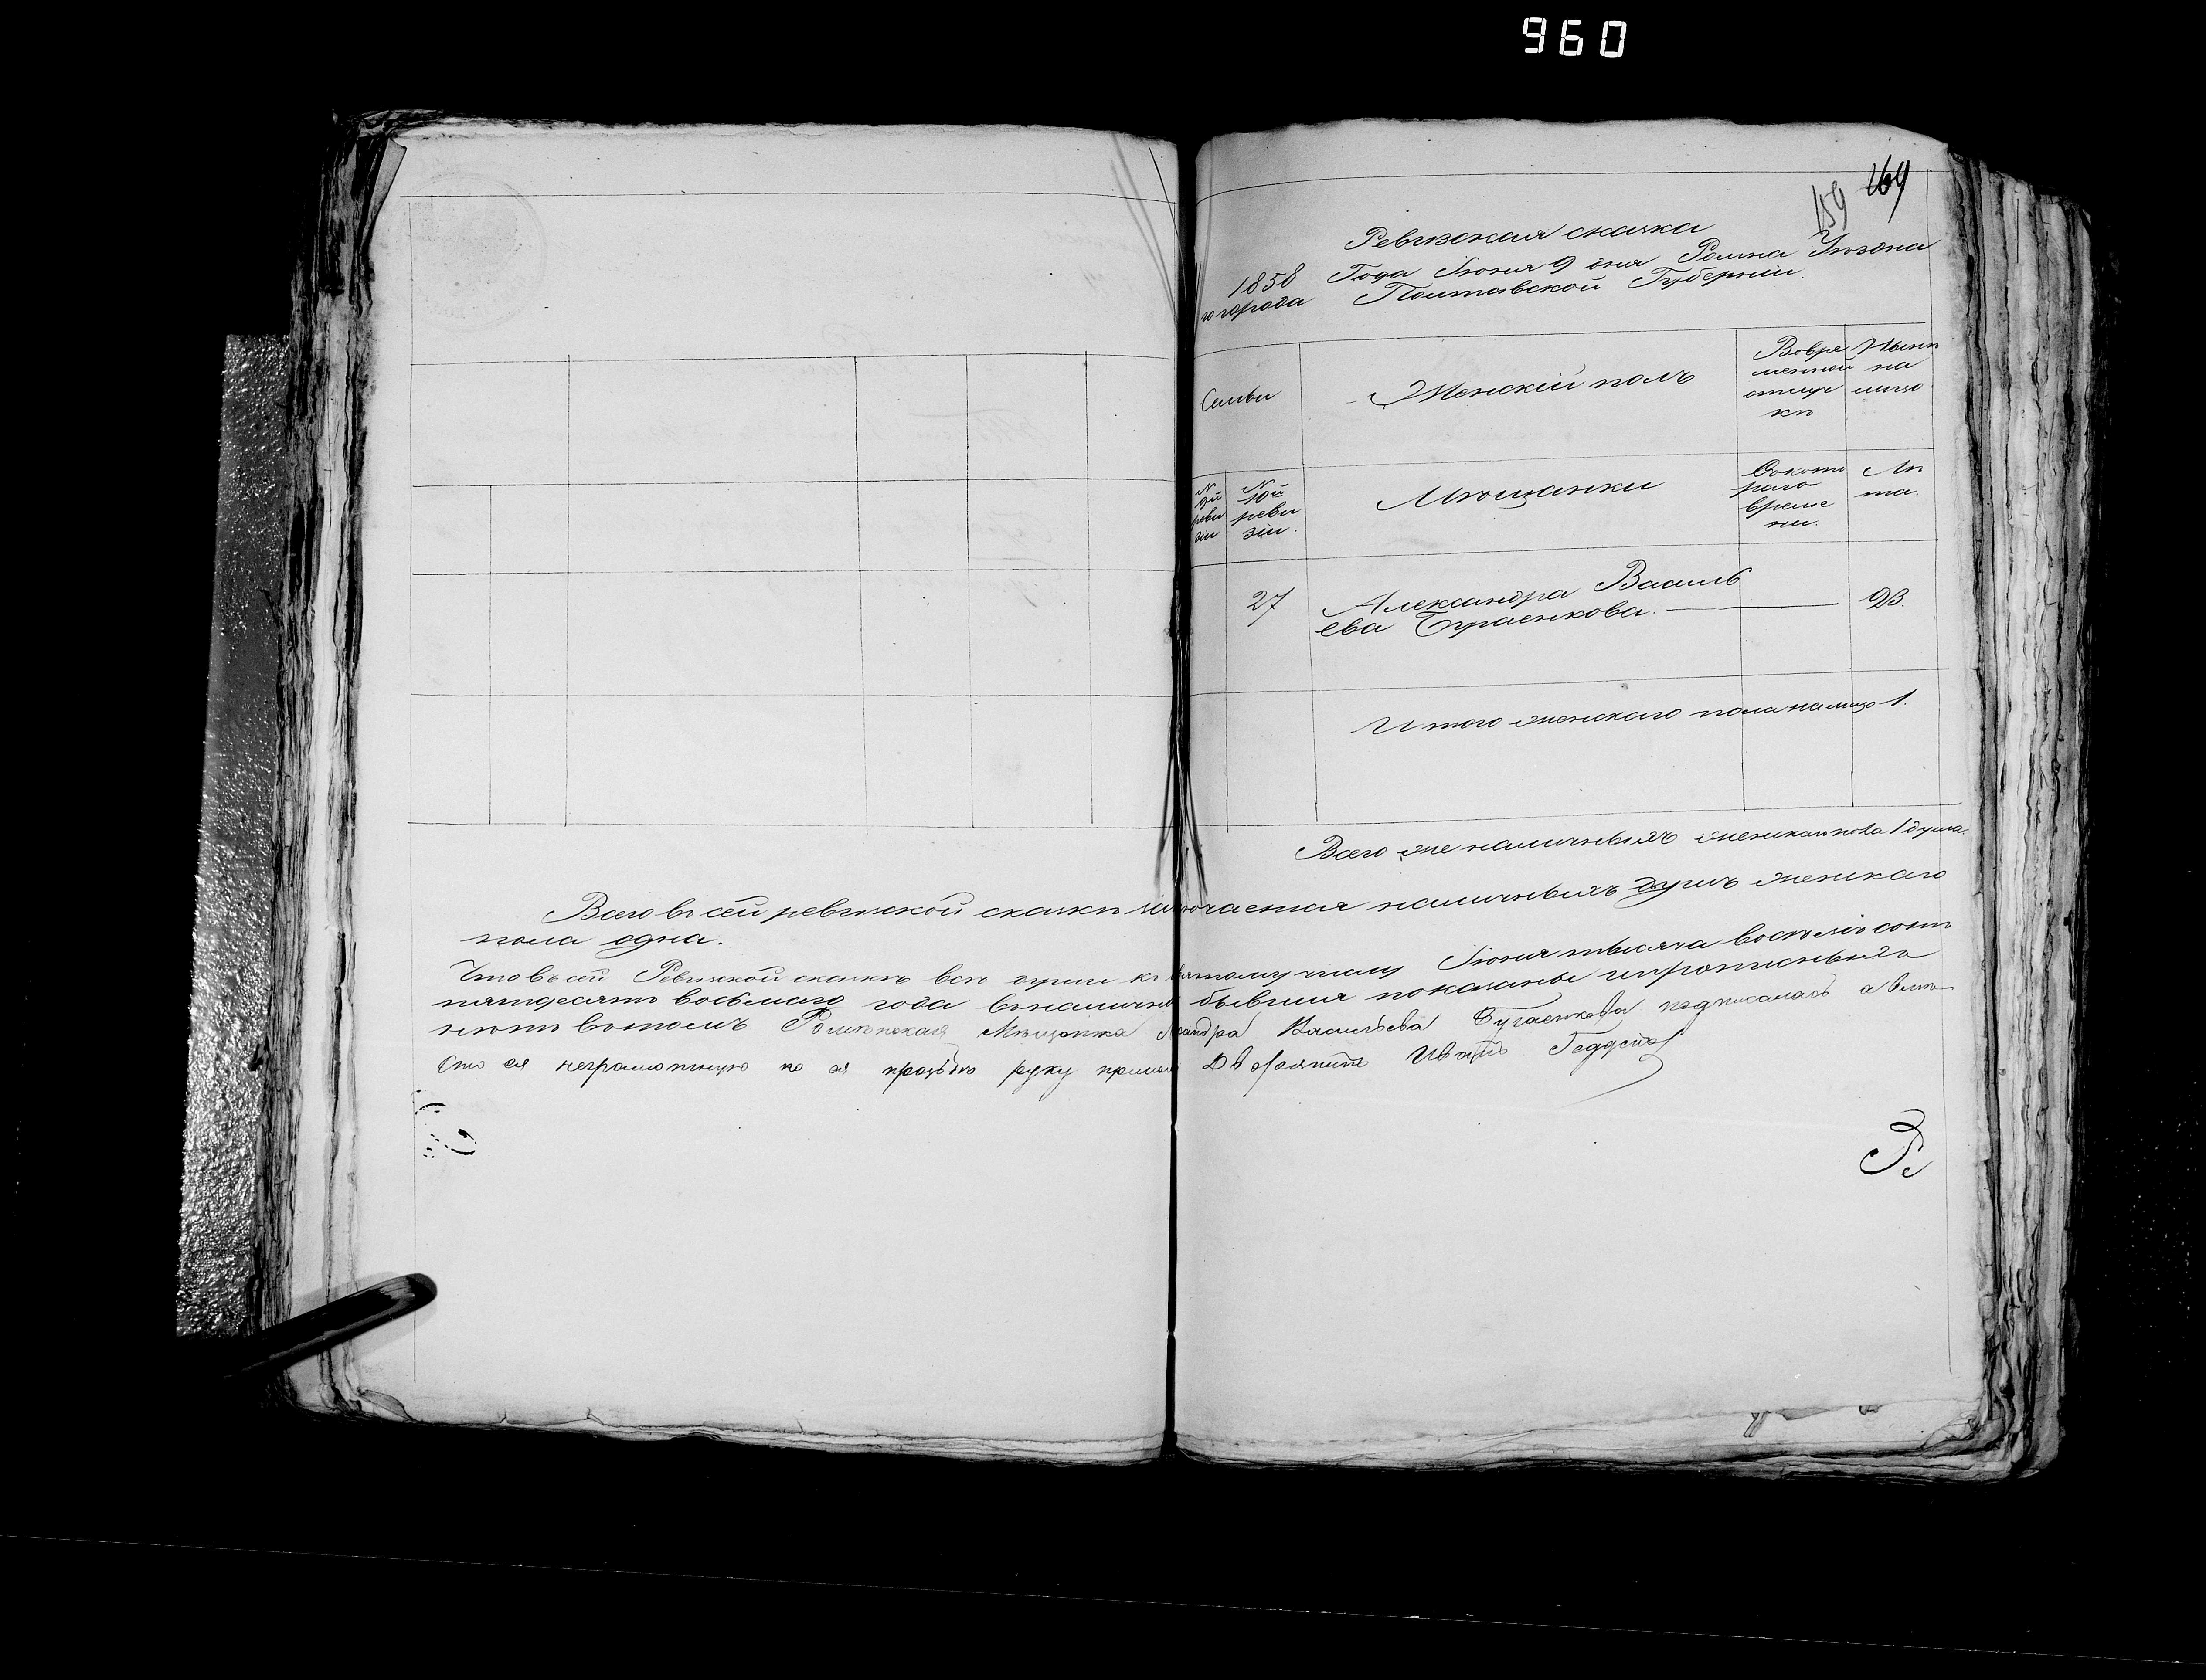 960
159 169
Ревизская сказка
1858 Года Іюня 9 дня Ромна Уѣзднаго города Полтавской Губерніи.
Семьи
Женскій полъ
Вовременной отлучкѣ
Нынѣ на лицо
№ 9й ревизіи
№ 10й ревизіи.
Мѣщанки
Съкотораго времени.
Лѣта.
27
Александра Василь
ева Бугаенкова.
23.
Итого женскаго пола на лицо 1.
Всего же наличныхъ женскаго пола 1 душа.
Всего въ сей ревизской сказкѣ наличныхъ душъ женскаго
пола одна.
Что въ сей Ревизской сказкѣ всѣ души къ числу Іюня тысяча восемьсотъ
пятдесятъ восьмаго года въ наличіи бывшія показаны и прописныхъ
нѣтъ вътомъ Роменская Мѣщанка Васильева Бугаенкова подписалась а вмѣ
сто ея неграмотную по ея прозьбѣ руку Дворянинъ Иванъ